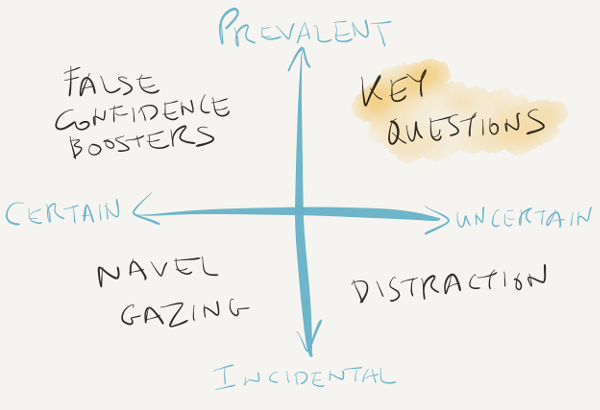 PREVALENT
FALSE
CONFIDENCE
BOOSTERS
KEY
QUESTIONS
CERTAIN
UNCERTAIN
NAVEL
GAZING
DISTRACTION
INCIDENTAL